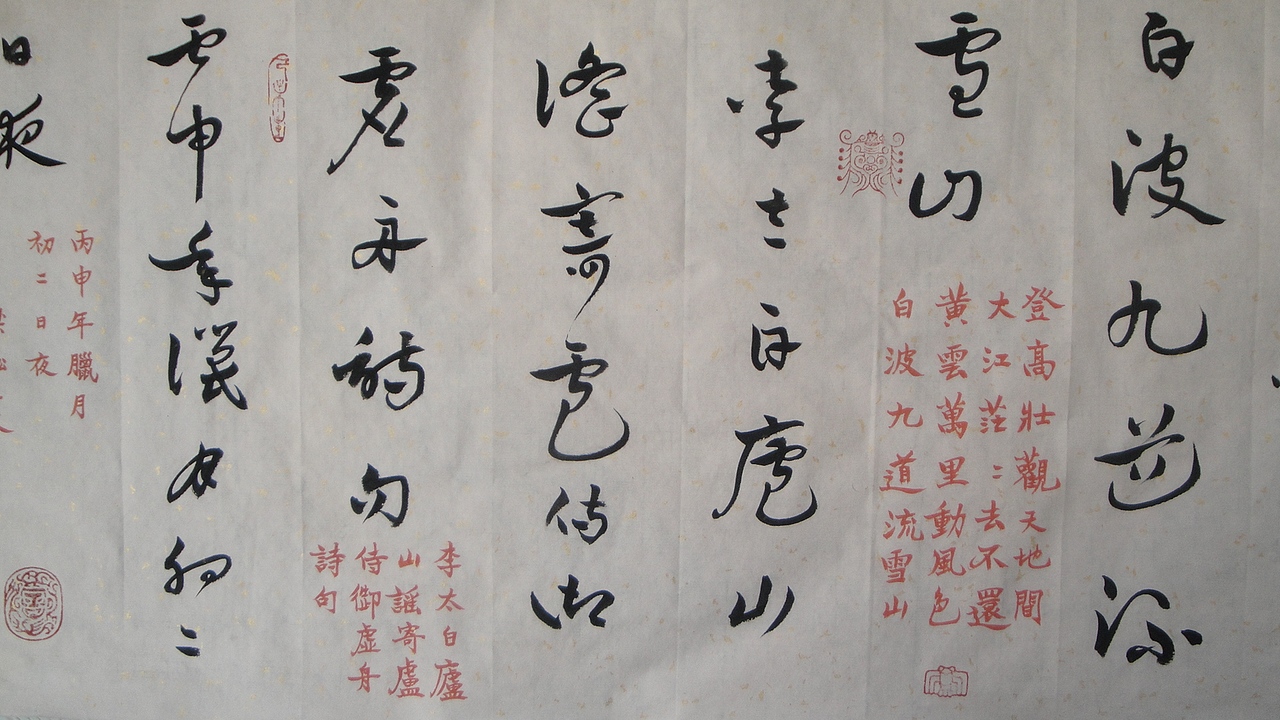 白波九道流
雪山
登高壯觀天地間
大江茫二去不還
黃雲萬里動風色
白波九道流雪山
李太白廬山
謠寄盧侍御
虛舟詩句
李太白廬
山謠寄盧
侍御虛舟
詩句
丙申年臘月初二
日夜
丙申年臘月
初二日夜